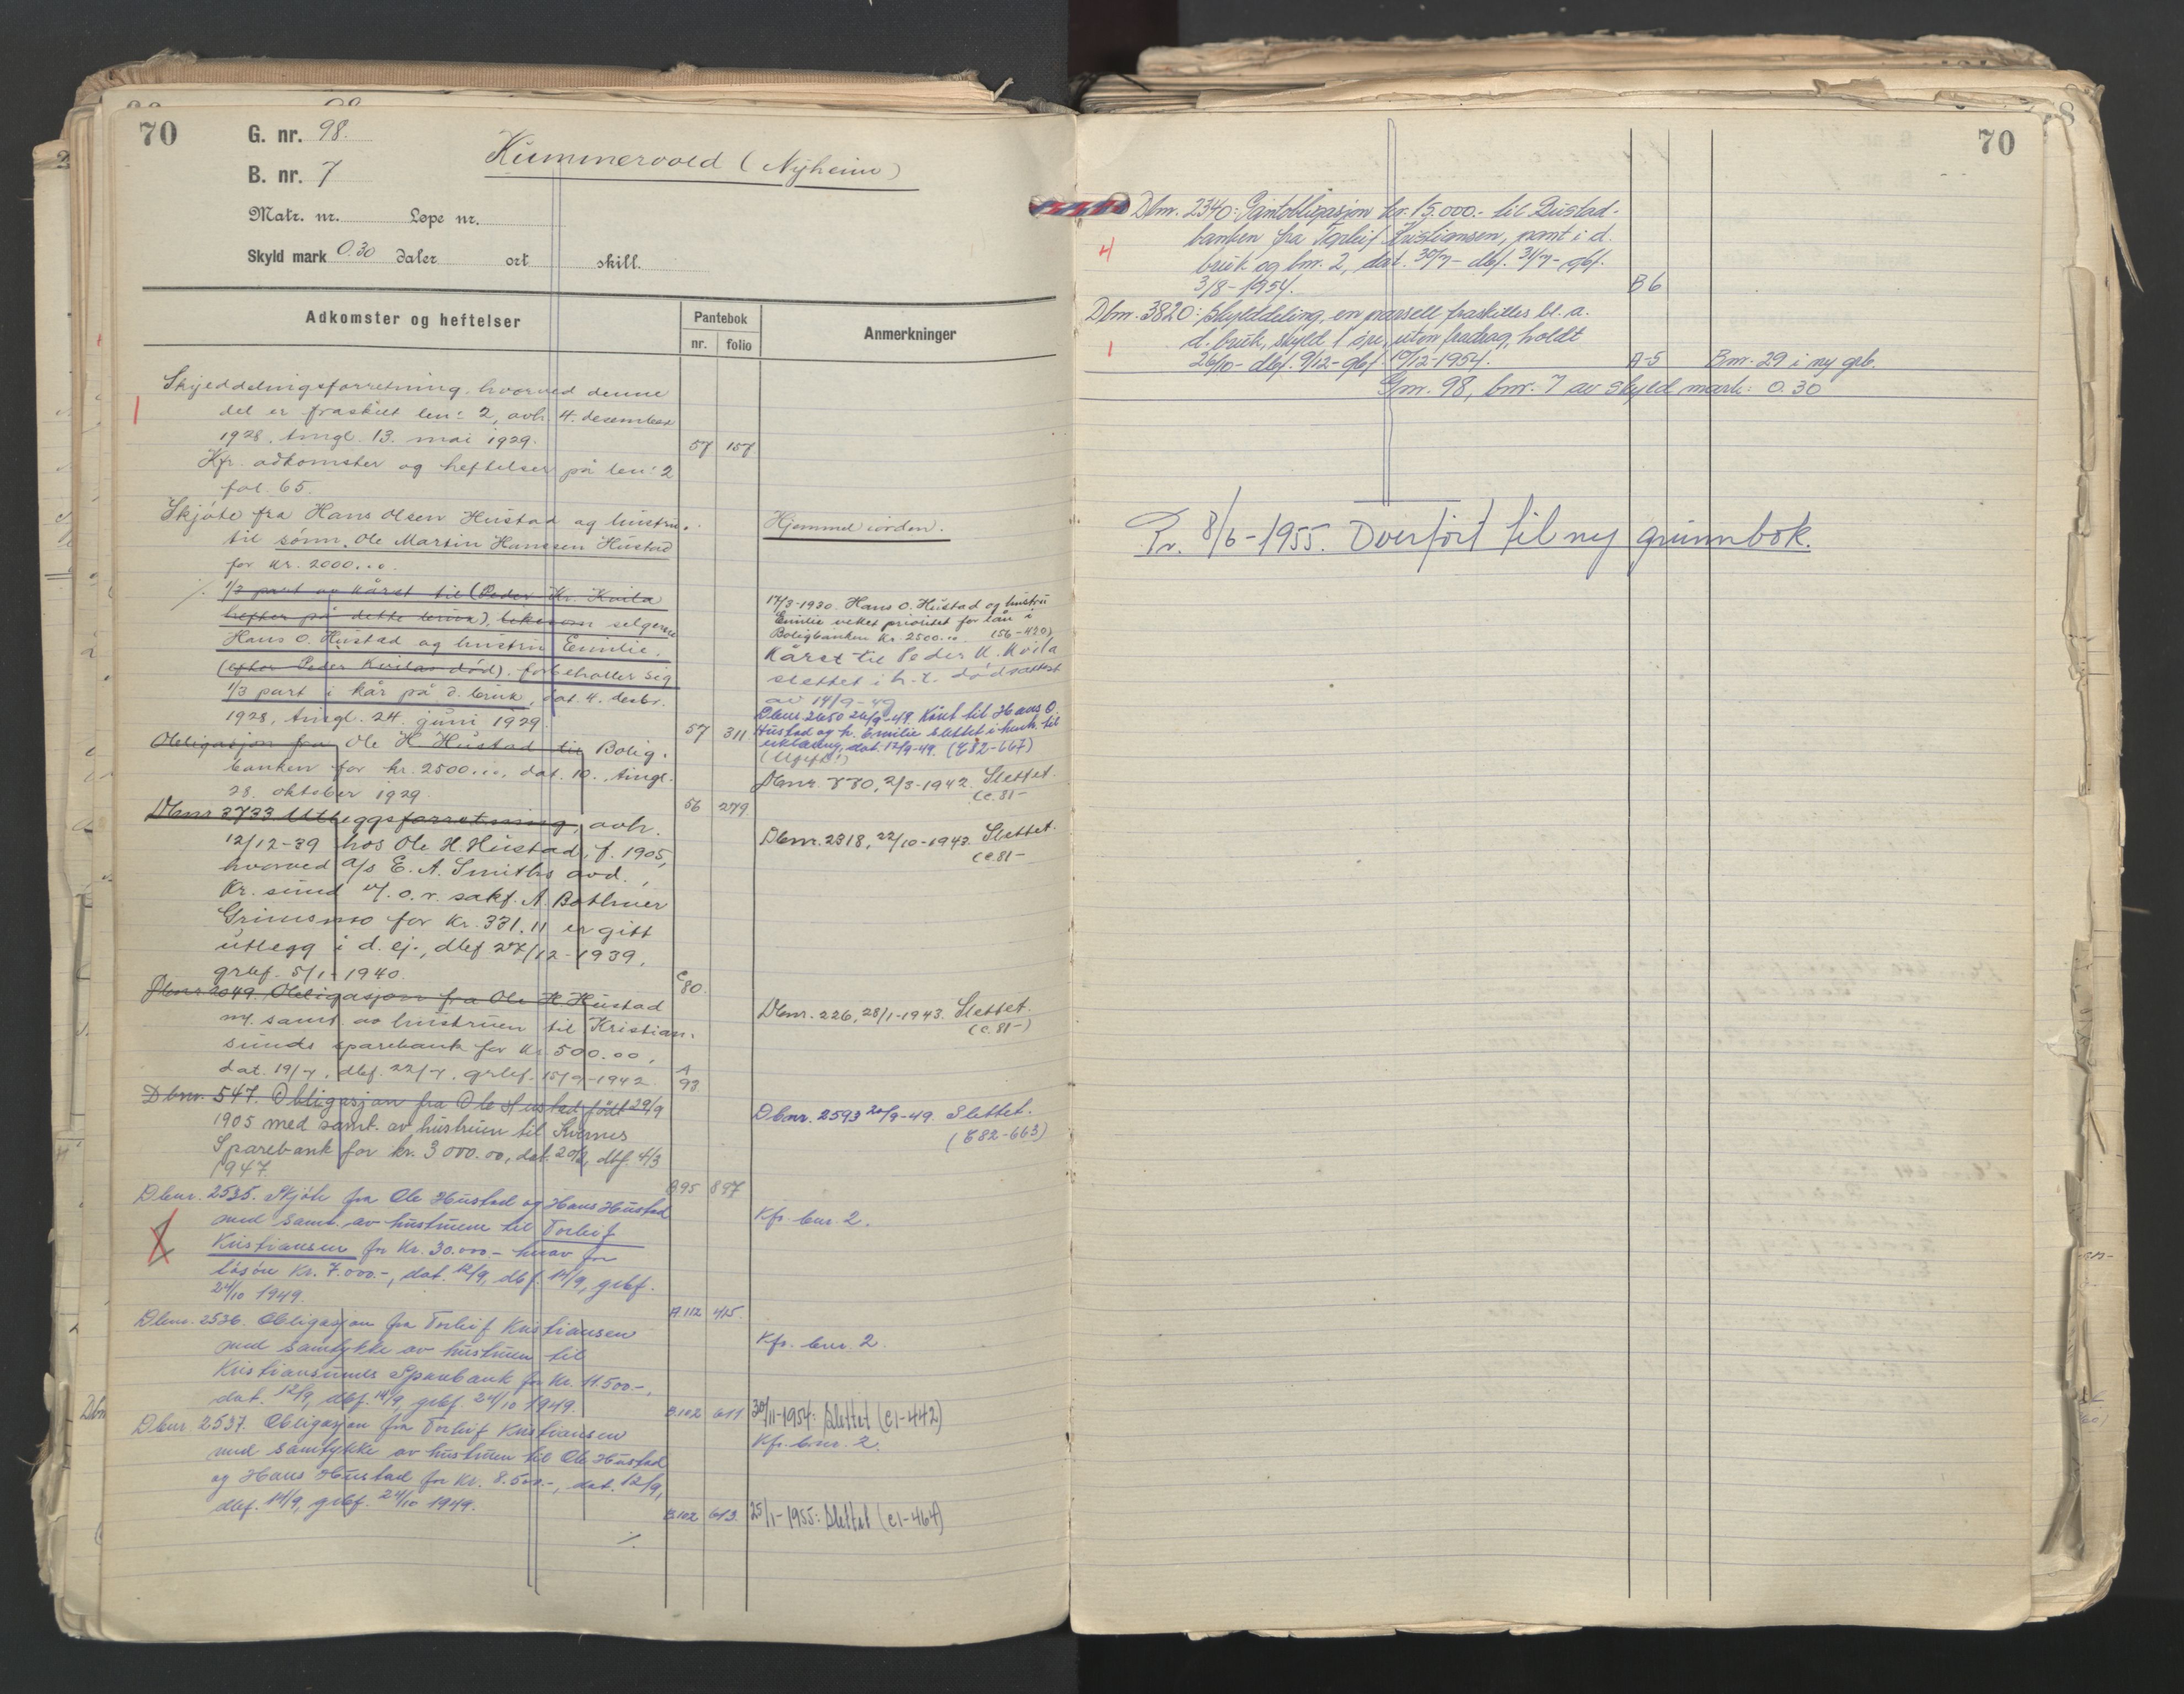 70
G. nr. 98.
B. nr. 7
Kummervold (Nyheim)
Matr. nr. Løpe nr.
Skyld mark 0.30 daler ort skill.
Adkomster og heftelser
Pantebok
nr. folio
Anmerkninger
1
Skylddelingsforretning, hvorved denne
del er fraskilt bnr 2, avh. 4. desember
1928, tingl. 13. mai 1929. 57 157
Kfr. adkomster og heftelser på bnr 2
fol. 65.
Skjöte fra Hans Olsen Hustad og hustru
til sönn, Ole Martin Hansen Hustad
for kr. 2000.00.
Hjemmel i orden.
1/3 part av kåret til (Peder Kr. Kvila
hefter på dette bruk), likesom selgeren
Hans O. Hustad og hustru Emilie,
(efter Peder Kvilas död), forbeholter sig
1/3 part i kår på d. bruk, dat. 4. desbr.
1928, tingl. 24. juni 1929. 57 311
17/3-1930. Hans O. Hustad og hustru
Emilie veket prioritet for lån i
Boligbanken kr. 2500.00. (56-430)
Kåret til Peder K. Kvila
slettet i h.t. dödsattest
av 14/9-49
Dbnr 2650 26/9-49. Kåret til Hans O.
Hustad og h. Emilie slettet i henh. til
erklæring, dat. 12/9-49. (C82-667)
Obligasjon fra Ole H. Hustad til Bolig-
banken for kr. 2500.00, dat. 10., tingl.
28. oktober 1929. 56 279.
Dbnr. 770, 2/3-1942. Slettet.
(C.81-
Dbnr 3733 Utleggsforretning, avh.
12/12-39 hos Ole H. Hustad, f. 1905,
hvorved A/S E. A. Smiths avd.,
Kr. sund v/ o.r. sakf. A. Bothner
Grimsmo for kr. 331.11 er gitt
utlegg i d. ej., dbf 27/12-1939,
grbf. 5/1-1940. C 80.
Dbnr. 2318, 22/10-1942. Slettet.
(C.81-
Dbnr 2049. Obligasjon fra Ole H. Hustad
m/ samt. av hustruen til Kristian-
sunds sparebank for kr. 500.00,
dat. 19/7, dbf. 22/7, grbf. 15/9-1942. A 93
Dbnr. 226, 28/1-1943. Slettet.
(C.81-)
Dbnr. 547. Obligasjon fra Ole Hustad født 29/9
1905 med samt. av hustruen til Kvernes
Sparebank for kr. 3 000.00, dat. 20/2, dbf. 4/3
1947. B95 897
Dbnr. 2593 20/9-49. Slettet.
(C82-663)
Dbnr. 2535. Skjöte fra Ole Hustad og Hans Hustad
med samt. av hustruene til Torleif
Kristiansen for kr. 30.000.- herav for
lösöre kr. 7.000.-, dat. 12/9, dbf. 14/9, grbf.
24/10 1949. A.112 415.
Kfr. bnr. 2.
Dbnr. 2536. Obligasjon fra Torleif Kristiansen
med samtykke av hustruen til
Kristiansunds Sparebank for kr. 11.500.-,
dat. 12/9, dbf. 14/9, grbf. 24/10 1949. B.102 611
Kfr. bnr. 2
30/11-1954: Slettet (C1-442)
Dbnr 2537. Obligasjon fra Torleif Kristiansen
med samtykke av hustruen til Ole Hustad
og Hans Hustad for kr. 8.500.-, dat. 12/9,
dbf. 14/9, grbf. 24/10 1949. B.102 613.
Kfr. bnr. 2.
25/1-1955: Slettet (C1-464)
70
4
Dbnr. 2340: Pantobligasjon kr. 15.000.- til Bustad-
banken fra Torleif Kristiansen, pant i d.
bruk og bnr. 2, dat. 30/7- dbf. 31/7- gbf.
3/8-1954. B6
1
Dbnr. 3820: Skylddeling, en parsell fraskilles bl. a.
d. bruk, skyld 1 øre, uten fradrag, holdt
26/10- dbf. 9/12- gbf. 10/12-1954. A-5 Bnr. 29 i ny grb.
Gnr. 98, bnr. 7 av skyld mark: 0.30
Pr. 8/6-1955. Overført til ny grunnbok.